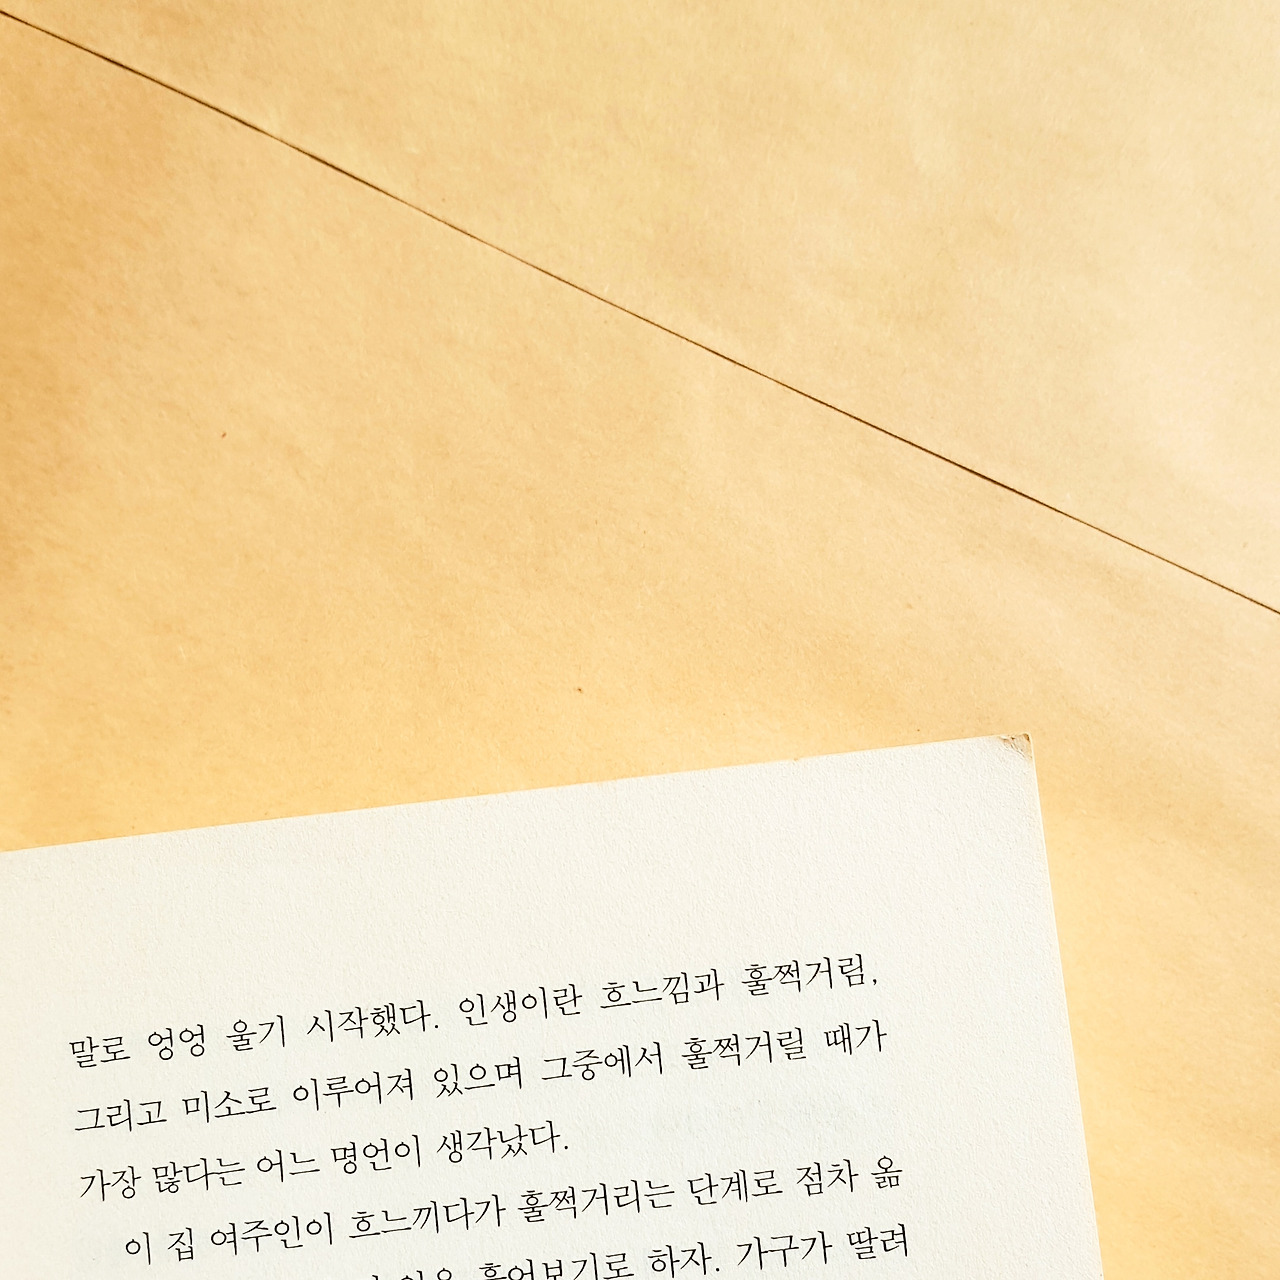 말로 엉엉 울기 시작했다. 인생이란 흐느낌과 훌쩍거림,
그리고 미소로 이루어져 있으며 그중에서 훌쩍거릴 때가
가장 많다는 어느 명언이 생각났다.
이 집 여주인이 흐느끼다가 훌쩍거리는 단계로 점차 옮
훑어보기로 하자. 가구가 딸려